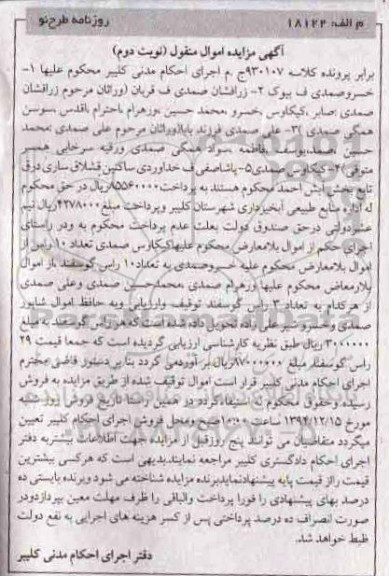 م الف: ۱۸۱۲۲ روزنامه طرح نو
آگهی مزایده اموال منقول (نوبت دوم)
برابر پرونده کلاسه ۹۳۰۱۰۷ج .م اجرای احکام مدنی کلیبر محکوم علیها ۱-
خسروصمدی ف بیوک ۲- زرافشان صمدی ف قربان (وراثان مرحوم زرافشان
صمدی :صابر ،کیکاوس ،خسرو ،محمد حسین ،وزهرام ،احترام ،اقدس ،سوسن
همگی صمدی )۳- علی صمدی فرزند بابا(وراثان مرحوم علی صمدی :محمد
حسین صمد،یوسف ،فاطمه ،سواد همگی صمدی ورقیه سرخابی همسر
متوفی)۴-کیکاوس صمدی۵- پاشاصفی ف خداوردی ساکنین قشلاق ساری درق
تابع بخش آبش احمد محکوم هستند به پرداخت ۸۵۵۶۰۰۰۰ریال در حق محکوم
له اداره منابع طبیعی آبخیزداری شهرستان کلیبر وپرداخت مبلغ ۴۲۷۸۰۰۰ریال نیم
عشردولتی درحق صندوق دولت بعلت عدم پرداخت محکوم به ودر راستای
اجرای حکم از اموال بلامعارض محکوم علیهاکیکاوس صمدی تعداد ۱۰ راس از
اموال بلامعارض محکوم علیه خسروصمدی به تعداد۱۰ راس گوسفند ،از اموال
بلاومعارض محکوم علیها وزهرام صمدی ،محمدحسین صمدی وعلی صمدی
از هرکدام به تعداد ۳ راس گوسفند توقیف وارزیابی وبه حافظ اموال شاپور
صمدی وخسرو شیر علی زاده تحویل داده شده است که هر راس گوسفند به مبلغ
۳۰۰۰۰۰۰ ریال طبق نظریه کارشناسی ارزیابی گردیده است که جمعا قیمت ۲۹
راس گوسفند مبلغ ۸۷۰۰۰۰۰۰ریال بر آوردمی گردد بنابر دستور قاضی محترم
اجرای احکام مدنی کلیبر قرار است اموال توقیف شده از طریق مزایده به فروش
رسیده وحقوق محکوم له استیفاگردد در همین راستا تاریخ فروش روز شنبه
مورخ ۱۳۹۴/۱۲/۱۵ ساعت ۱۰:۰۰صبح ومحل فروش اجرای احکام کلیبر تعیین
میگردد متقاضیان می توانند پنج روزقبل از مزایده جهت اطلاعات بیشتربه دفتر
اجرای احکام دادگستری کلیبر مراجعه نمایند.بدیهی است که هرکسی بیشترین
قیمت رااز قیمت پایه پیشنهادنمایدبرنده مزایده شناخته می شود وبرنده بایستی ده
درصد بهای پیشنهادی را فورا پرداخت والباقی را ظرف مهلت معین بپردازدودر
صورت انصراف ده درصد پرداختی پس از کسر هزینه های اجرایی به نفع دولت
ظبط خواهد شد.
دفتر اجرای احکام مدنی کلیبر
ParsNamadData